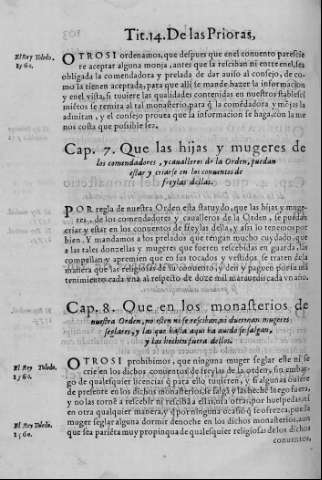 Tit.14. De las Prioras,
El Rey Toledo,
1560.
OTROSI ordenamos, que despues que enel conuento paresciere
re aceptar alguna monja, antes que la reciban ni entre enel, sea
obligada la comendadora y prelada de dar auiso al consejo, de co-
mo la tienen aceptada, para que alli se mande hazer la informacion
y enel vista, si tuuiere las qualidades contenidas en nuestros establesci
miẽtos se remita al tal monasterio, para q̃ la comẽdadora y mõjas la
admitan, y el consejo prouea que la informacion se haga, con la me
nos costa que possible sea.
Cap. 7. Que las hijas y mugeres de
los comendadores, y caualleros de la Orden, puedan
estar y criarse en los conuentos de
freylas dellas.
POR regla de nuestra Orden esta statuydo, que las hijas y muge-
res, de los comendadores y caualleros de la Orden, se puedan
criar y estar en los conuentos de freylas della, y assi lo tenemos por
bien. Y mandamos a los prelados que tengan mucho cuydado, que
a las tales donzellas y mugeres que fueren rescebidas en guarda, las
compellan y apremien que en sus tocados y vestidos, se traten de la
manera que las religiosas de su conuento, y den y paguen por su mã
tenimiento cada vna al respecto de doze mil marauedis cada vn año.
Cap. 8. Que en los monasterios de
nuestra Orden, no esten ni se resciban, ni duerman mugeres
seglares, y las que hasta aqui ha auido se salgan,
y las hechen fuera dellos.
El Rey Toledo.
1560.
OTROSI prohibimos, que ninguna muger seglar este ni se
crie en los dichos conuentos de freylas de la orden, sin embar-
go de qualesquier licencias q̃ para ello tuuieren, y si algunas ouiere
de presente en los dichos monasterios, se salgã y las heche luego fuera,
y no las torne a rescebir ni resciba a ellas, ni a otras, por huespedas, ni
en otra qualquier manera, y q̃ por ninguna ocasiõ q̃ se ofrezca, pueda
muger seglar alguna dormir de noche en los dichos monasterios, aun
que sea pariẽta muy propinqua de qualesquier religiosas de los dichos
El Rey Toledo.
1560.
conuentos,